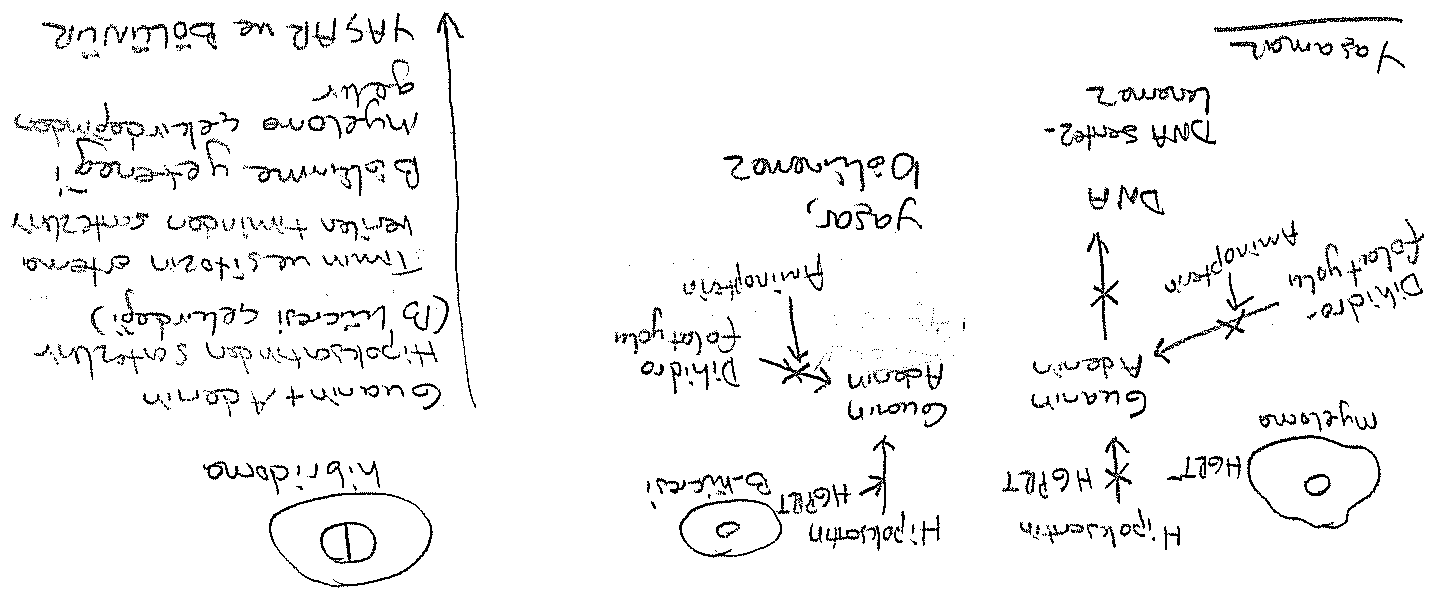 HGRT-
myeloma
Hipoksantin
HGPRT
Guanin
Adenin
Dihidro-
folat yolu
Aminopterin
DNA
DNA sentez-
lenemez
Yaşamaz
B-hücresi
Hipoksantin
HGPRT
Guanin
Adenin
Dihidro
folat yolu
Aminopterin
yaşar,
bölünemez
hibridoma
Guanin + Adenin
Hipoksantinden sentezlenir
(B hücresi çekirdeği)
Timin ve sitozin ortama
verilen timinden sentezlenir
Bölünme yeteneği
myeloma çekirdeğinden
gelir
YAŞAR ve BÖLÜNÜR